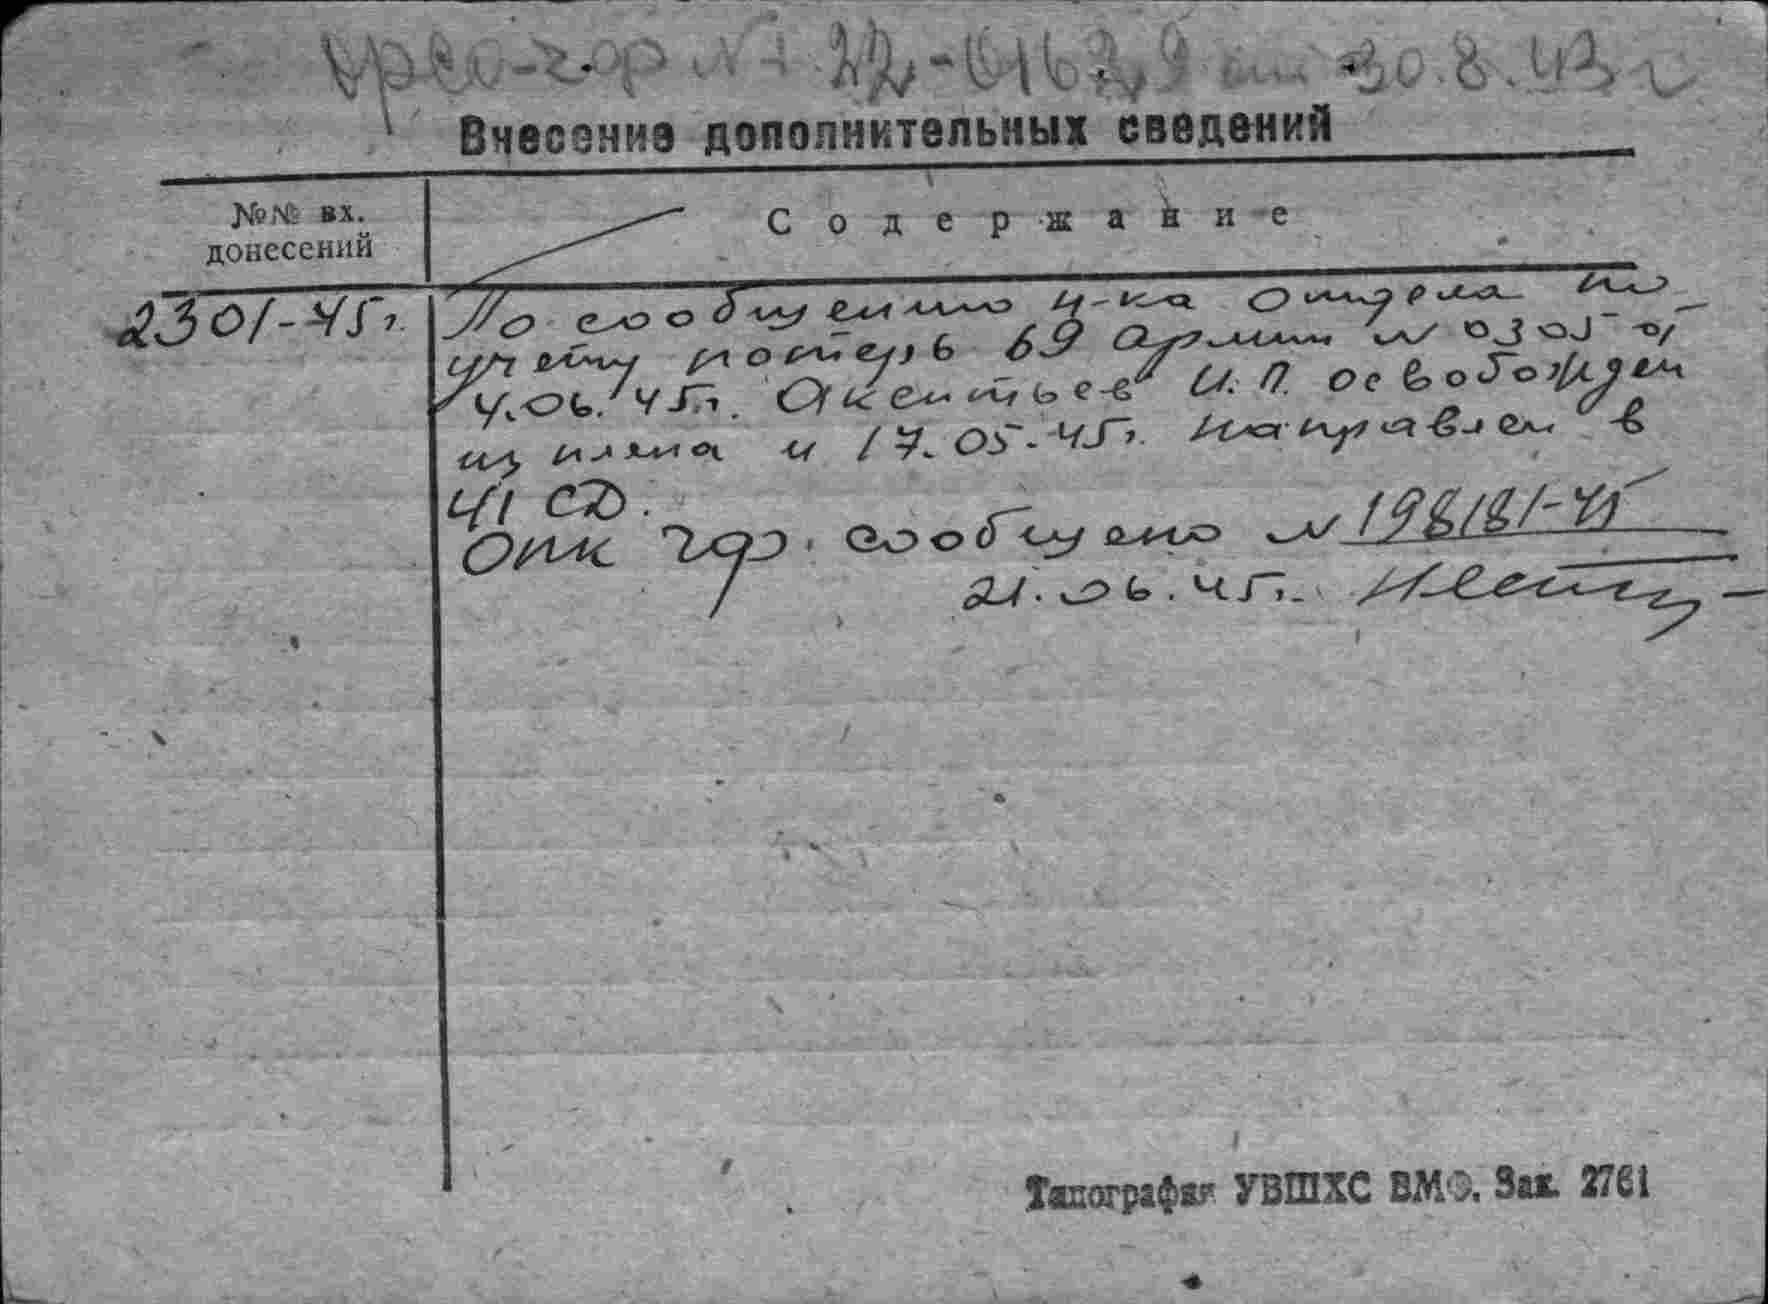 № 22-01629 от 30.8.43 г
Внесение дополнительных сведений
№№ вх. донесений
Содержание
2301-45г.
По сообщению н-ка отдела по
учету потерь 69 Армии № 0305 от
4.06.45г. Акентьев И.П. освобожден
из плена и 17.05.45г. направлен в
41 СД.
ОПК ГФ. сообщено № 198181-45
21.06.45г.
Типография УВШХС ВМФ. Зак. 2761